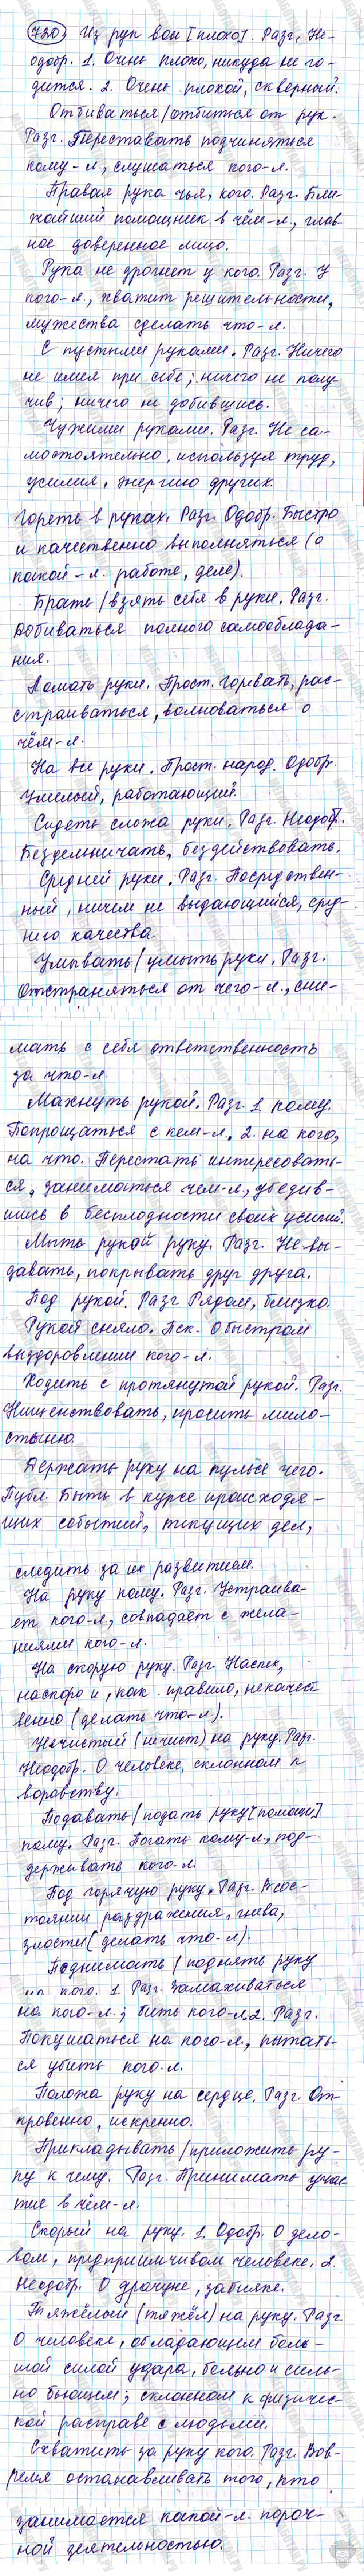 720 Из рук вон [плохо]. Разг. Не-
одобр. 1. Очень плохо, никуда не го-
дится. 2. Очень плохой, скверный.
Отбиваться/отбиться от рук.
Разг. Переставать подчиняться
кому-л., слушаться кого-л.
Правая рука чья, кого. Разг. Бли-
жайший помощник в чём-л., глав-
ное доверенное лицо.
Рука не дрогнет у кого. Разг. У
кого-л., хватит решительности,
мужества сделать что-л.
С пустыми руками. Разг. Ничего
не имея при себе; ничего не полу-
чив; ничего не добившись.
Чужими руками. Разг. Не са-
мостоятельно, используя труд,
усилия, энергию других.
Гореть в руках. Разг. Одобр. Быстро
и качественно выполняться (о
какой-л. работе, деле).
Брать/взять себя в руки. Разг.
Добиваться полного самооблада-
ния.
Ломать руки. Прост. Горевать, рас-
страиваться, волноваться о
чём-л.
На все руки. Прост. народ. Одобр.
Умелый, работающий.
Сидеть сложа руки. Разг. Неодобр.
Бездельничать, бездействовать.
Средней руки. Разг. Посредствен-
ный, ничем не выдающийся, сред-
него качества.
Умывать/умыть руки. Разг.
Отстраняться от чего-л., сни-
мать с себя ответственность
за что-л.
Махнуть рукой. Разг. 1. кому.
Попрощаться с кем-л. 2. на кого,
на что. Перестать интересовать-
ся, заниматься чем-л., убедив-
шись в бесплодности своих усилий.
Мыть рукой руку. Разг. Не вы-
давать, покрывать друг друга.
Под рукой. Разг. Рядом, близко.
Рукой сняло. Пск. О быстром
выздоровлении кого-л.
Ходить с протянутой рукой. Разг.
Нищенствовать, просить мило-
стыню.
Держать руку на пульсе чего.
Публ. Быть в курсе происходя-
щих событий, текущих дел,
следить за их развитием.
На руку кому. Разг. Устраива-
ет кого-л., совпадает с жела-
ниями кого-л.
На скорую руку. Разг. Наспех,
наскоро и, как правило, некачест
венно (делать что-л.).
Нечистый (нечист) на руку. Разг.
Неодобр. О человеке, склонном к
воровству.
Подавать/подать руку [помощи]
кому. Разг. Помогать кому-л., под-
держивать кого-л.
Под горячую руку. Разг. В сос-
тоянии раздражения, гнева,
злости (делать что-л.).
Поднимать/поднять руку
на кого. 1. Разг. Замахиваться
на кого-л.; бить кого-л. 2. Разг.
Покушаться на кого-л., пытать-
ся убить кого-л.
Положа руку на сердце. Разг. От
кровенно, искренно.
Прикладывать/приложить ру-
ку к чему. Разг. Принимать учас
тие в чём-л.
Скорый на руку. 1. Одобр. О дело-
вом, предприимчивом человеке. 2.
Неодобр. О драчуне, забияке.
Тяжёлый (тяжёл) на руку. Разг.
О человеке, обладающем боль-
шой силой удара, больно и силь-
но бьющем; склонном к физичес-
кой расправе с людьми.
Схватить за руку кого. Разг. Вов-
ремя останавливать того, кто
занимается какой-л. пороч-
ной деятельностью.